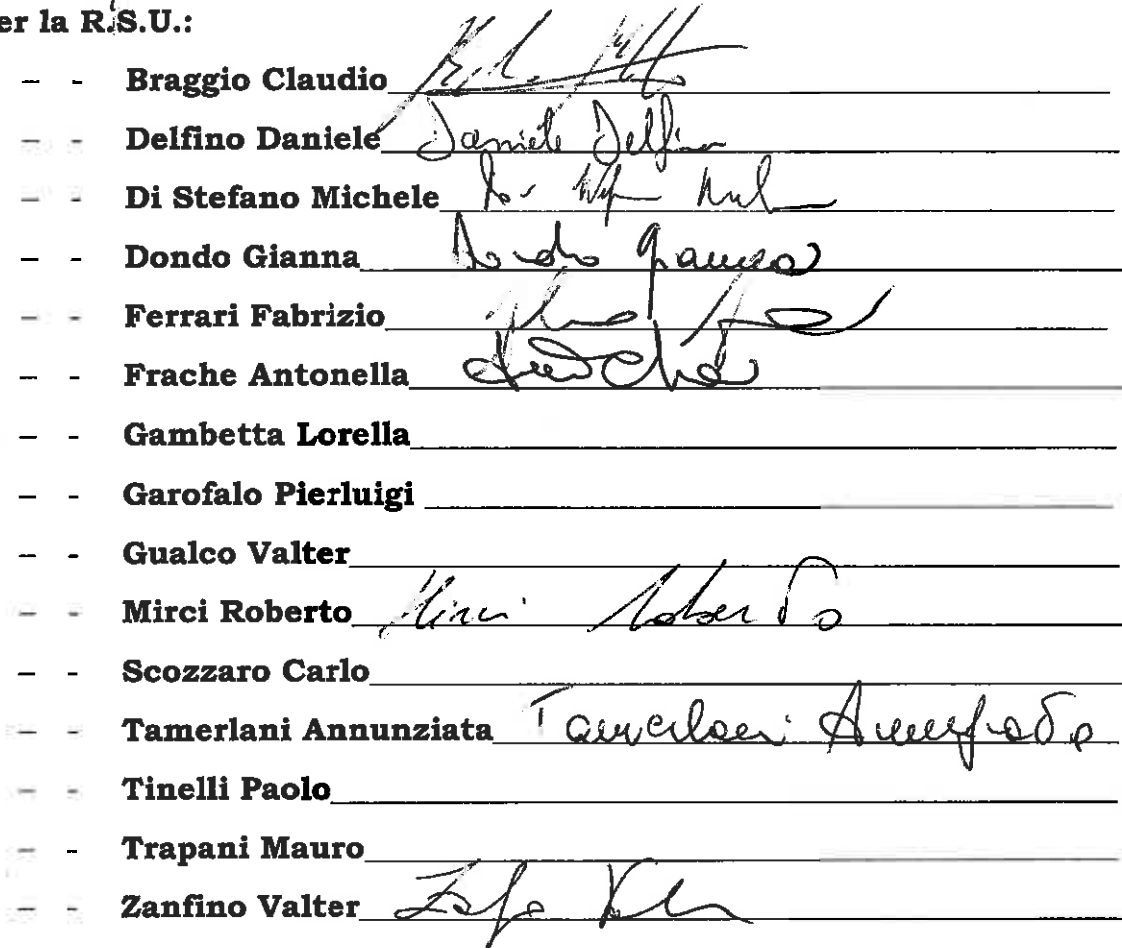 er la R.S.U.:
– - Braggio Claudio
– - Delfino Daniele Daniele Delfino
– - Di Stefano Michele
– - Dondo Gianna Dondo Gianna
– - Ferrari Fabrizio
– - Frache Antonella
– - Gambetta Lorella
– - Garofalo Pierluigi
– - Gualco Valter
– - Mirci Roberto Mirci Roberto
– - Scozzaro Carlo
– - Tamerlani Annunziata Tamerlani Annunziata
– - Tinelli Paolo
– - Trapani Mauro
– - Zanfino Valter